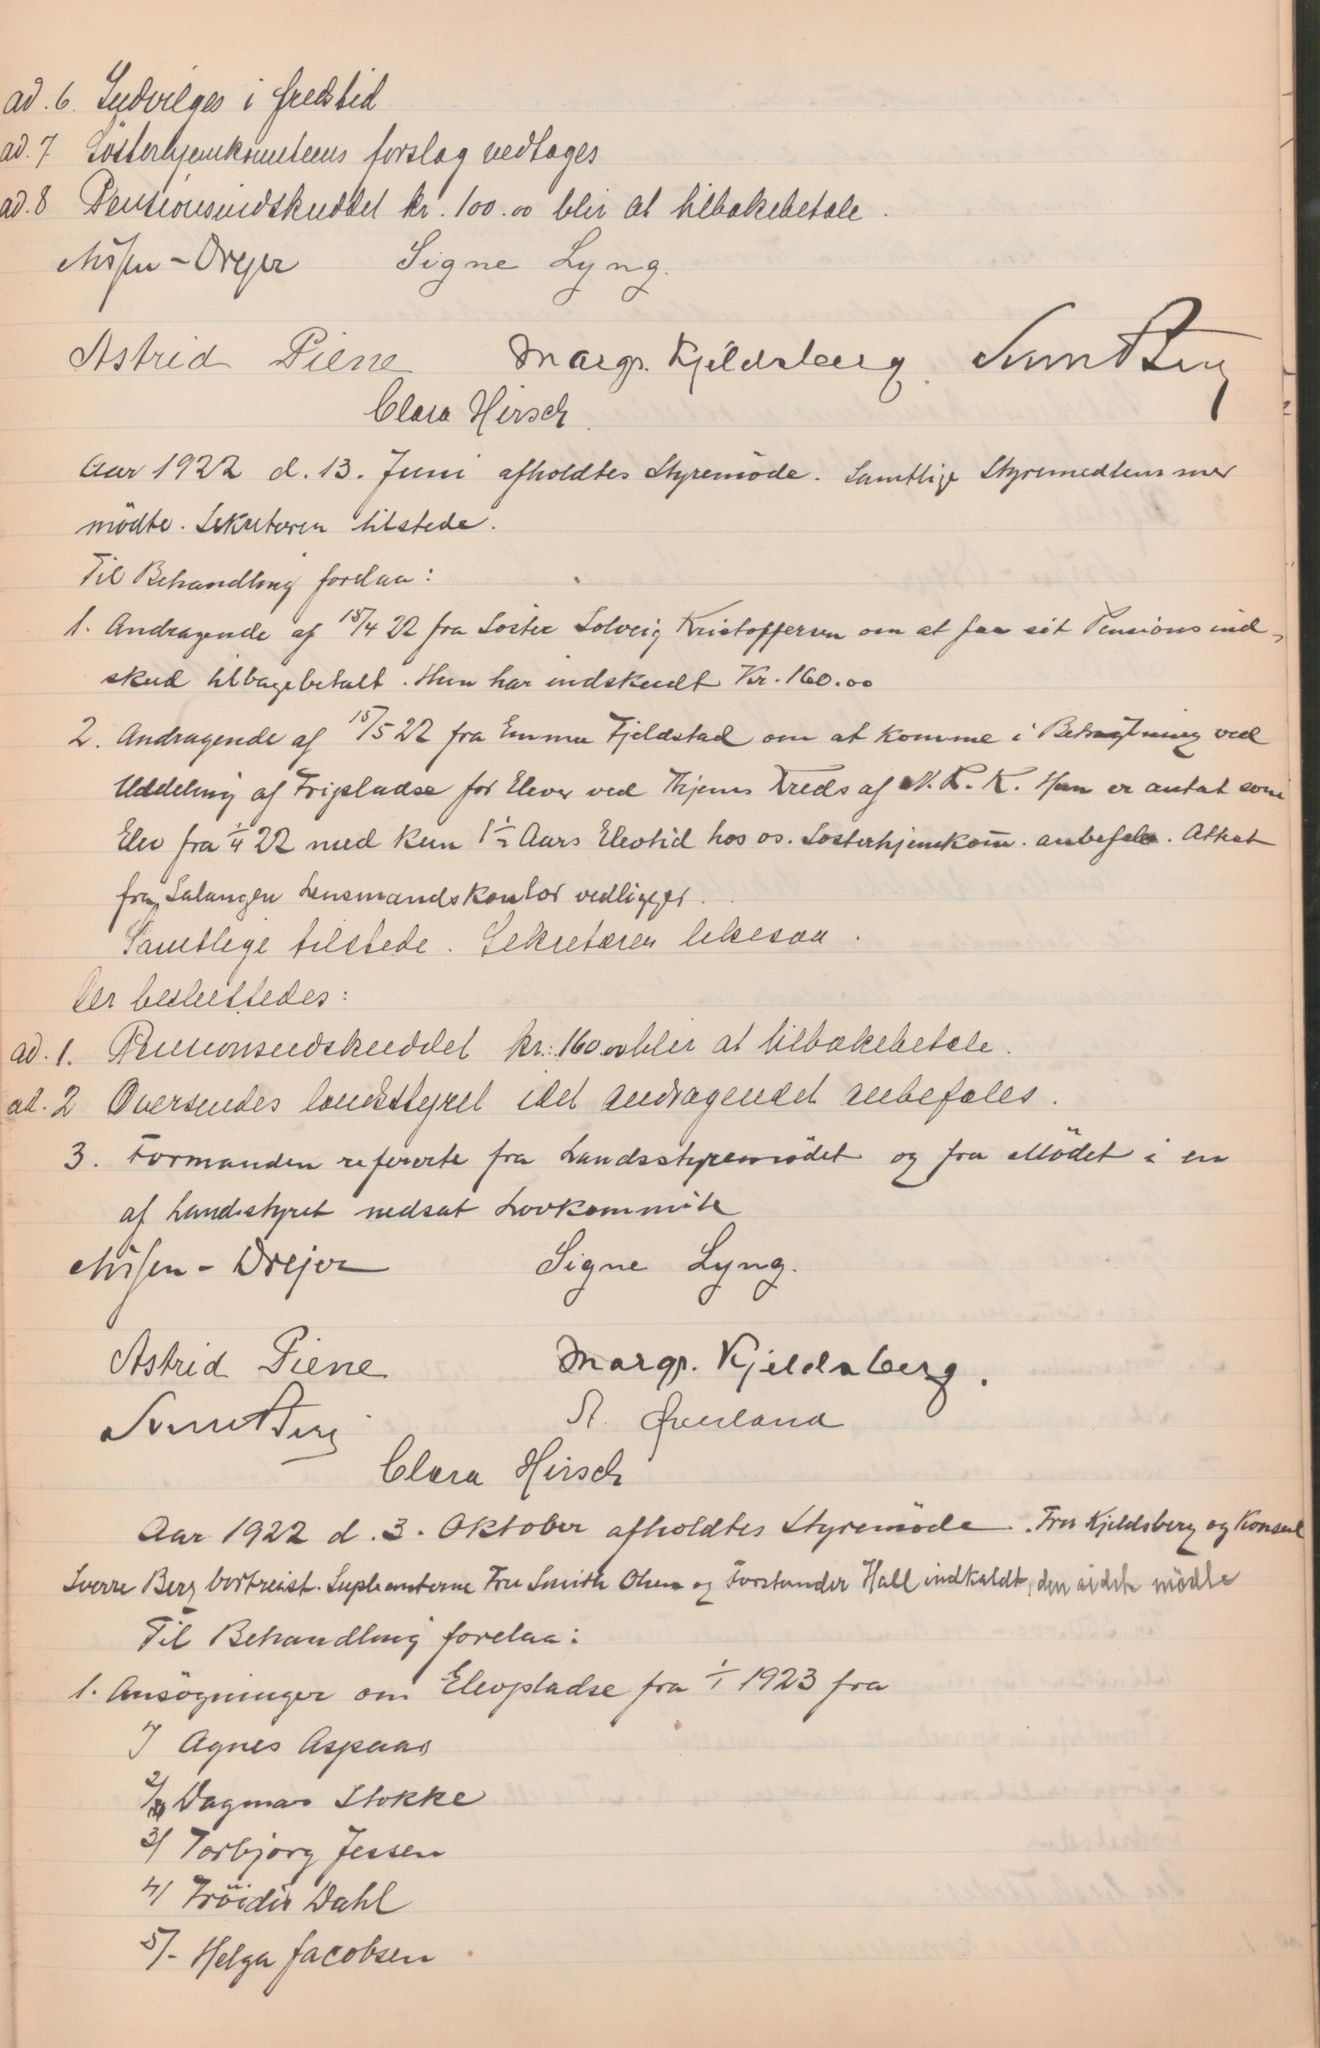 ad. 6. Indvilges i fredstid
ad. 7 Søsterhjemkomiteens forslag vedtages
ad. 8 Pensionsindskuddet kr. 100.00 blir at tilbakebetale.
Nissen-Drejer Signe Lyng.
Astrid Piene Margr. Kjeldsberg. Sverre Berg
Clara Hirsch.
Aar 1922 d. 13. Juni afholdtes Styremöde. Samtlige Styremedlemmer
mödte. Sekretæren tilstede.
Til Behandling forelaa:
1. Andragende af 15/4 22 fra Söster Solveig Kristoffersen om at faa sit Pensionsind-
skud tilbagebetalt. Hun har indskudt Kr. 160.00
2. Andragende af 15/5 22 fra Emma Fjeldstad om at komme i Betragtning ved
Uddeling af Fripladse for Elever ved Thjems Kreds af N.R.K. Hun er antat som
Elev fra 1/4 22 med kun 1 1/2 Aars Elevtid hos os. Søsterhjemkom. anbefaler. Attest
fra Salangen Lensmandskontor vedligger.
Samtlige tilstede. Sekretæren likesaa.
Der besluttedes:
ad. 1. Pensionsindskuddet kr. 160.00 blir at tilbakebetale.
ad. 2 Oversendes landsstyret idet andragendet anbefales.
3. Formanden refererte fra Landsstyremödet og fra Mödet i en
af Landsstyret nedsat Lovkommité
Nissen-Drejer Signe Lyng.
Astrid Piene Margr. Kjeldsberg.
Sverre Berg Øverland
Clara Hirsch
Aar 1922 d. 3. Oktober afholdtes Styremöde. Fru Kjeldsberg og Konsul
Sverre Berg bortreist. Supleanterne Fru Smith Olsen og Forstander Hall indkaldt, den sidste mödte
Til Behandling forelaa:
1. Ansögninger om Elevpladse fra 1/1 1923 fra
1/ Agnes Aspaas
2/ Dagmar Stokke
3/ Torbjørg Jessen
4/ Fröidis Dahl
5/- Helga Jacobsen